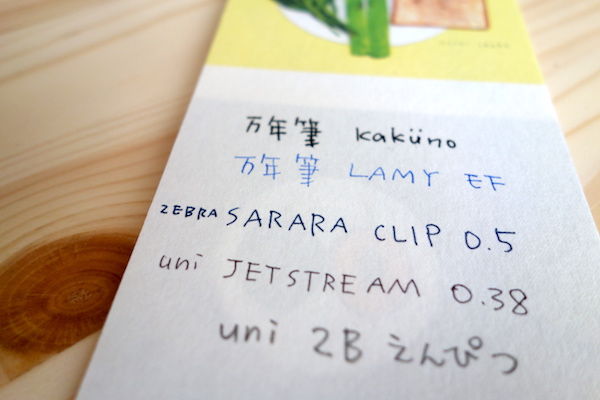 万年筆 kaküno
万年筆 LAMY EF
ZEBRA SARARA CLIP 0.5
uni JETSTREAM 0.38
uni 2B えんぴつ